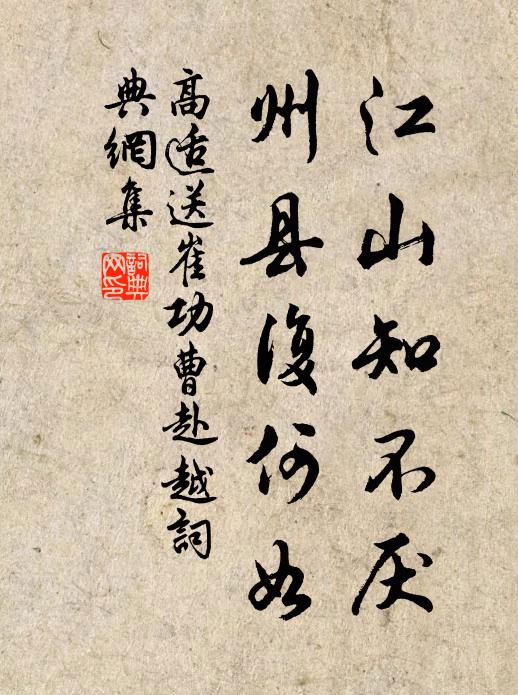 江山知不厌
州县复何如
高适送崔功曹赴越詞
典網集
詞典
网印